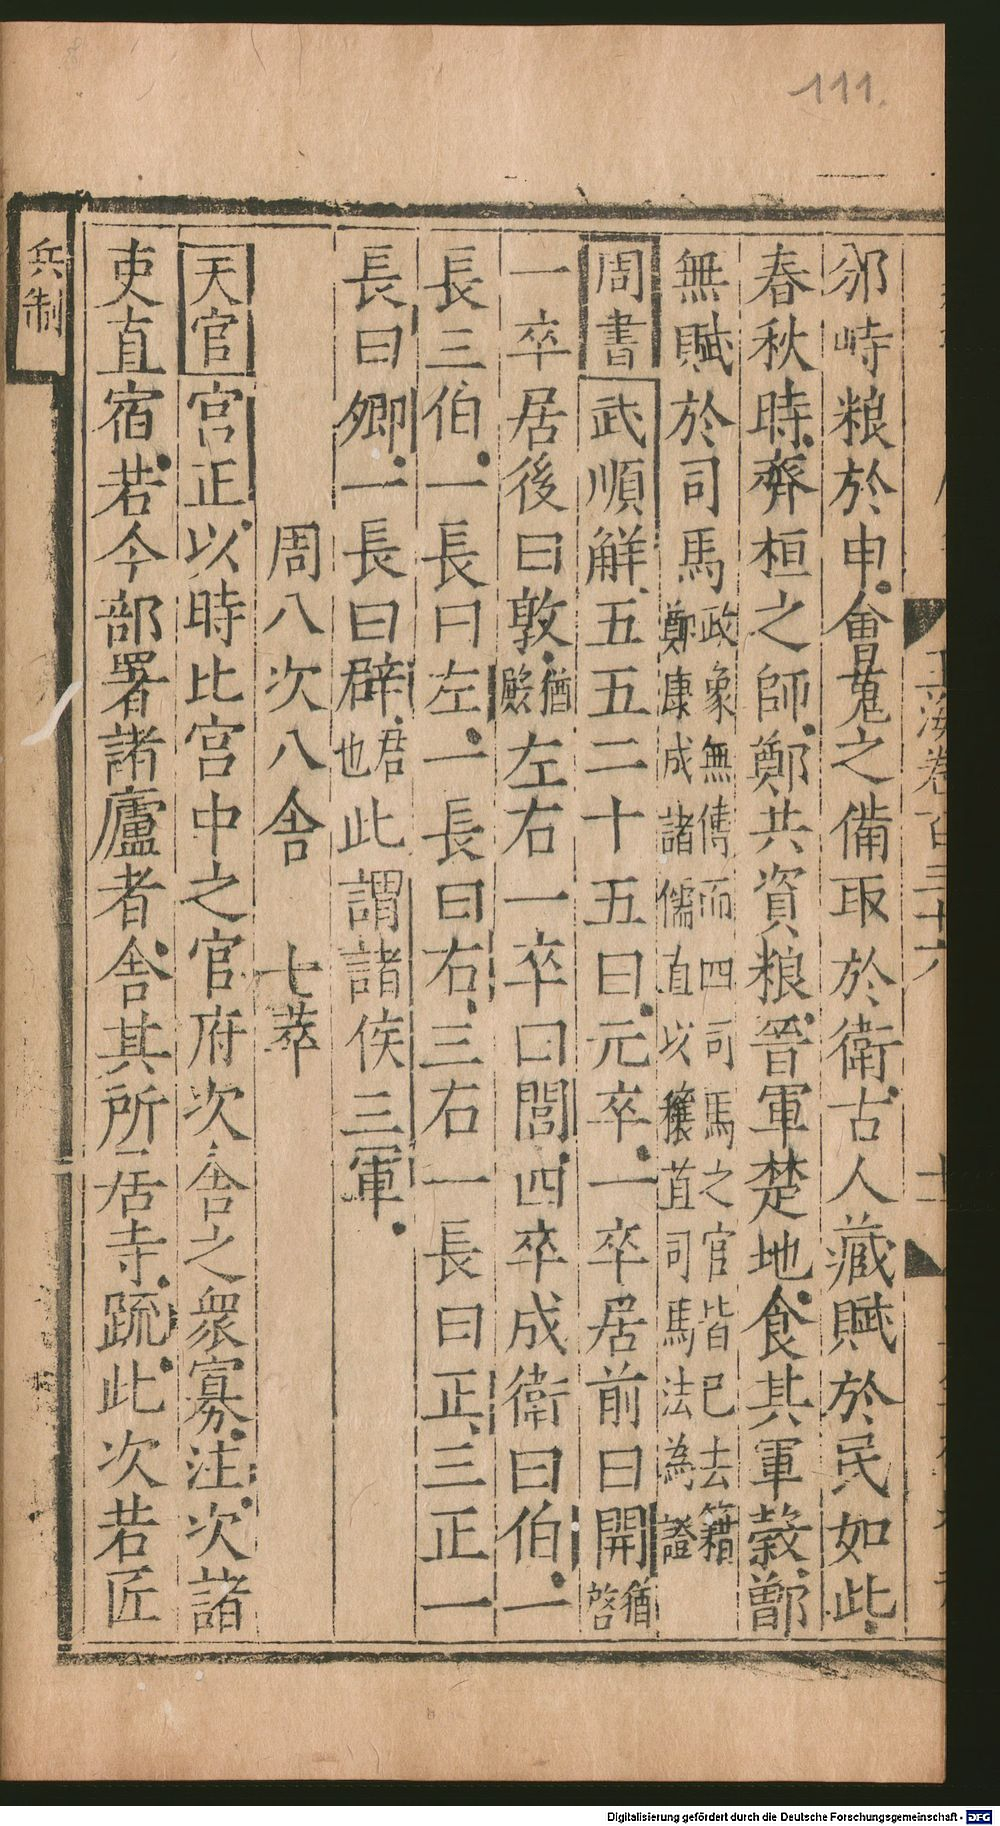 111.
邠峙粮於申會蒐之備取於衛古人藏賦於民如此
春秋時齊桓之師鄭共資粮晉軍楚地食其軍榖鄫
無賦於司馬政象無傳而四司馬之官皆已去籍鄭康成諸儒直以穰苴司馬法為證
周書武順觧五五二十五曰元卒一卒居前曰開猶啓
一卒居後曰敦猶殿左右一卒曰閭四卒成衛曰伯一
長三伯一長曰左一長曰右三右一長曰正三正一
長曰卿一長曰辟君也此謂諸侯三軍
周八次八舎 七萃
天官宫正以時比宫中之官府次舎之衆寡注次諸
吏直宿若今部署諸廬者舎其所居寺疏此次若匠
兵制
玉海卷百三十六
Digitalisierung gefördert durch die Deutsche Forschungsgemeinschaft - DFG